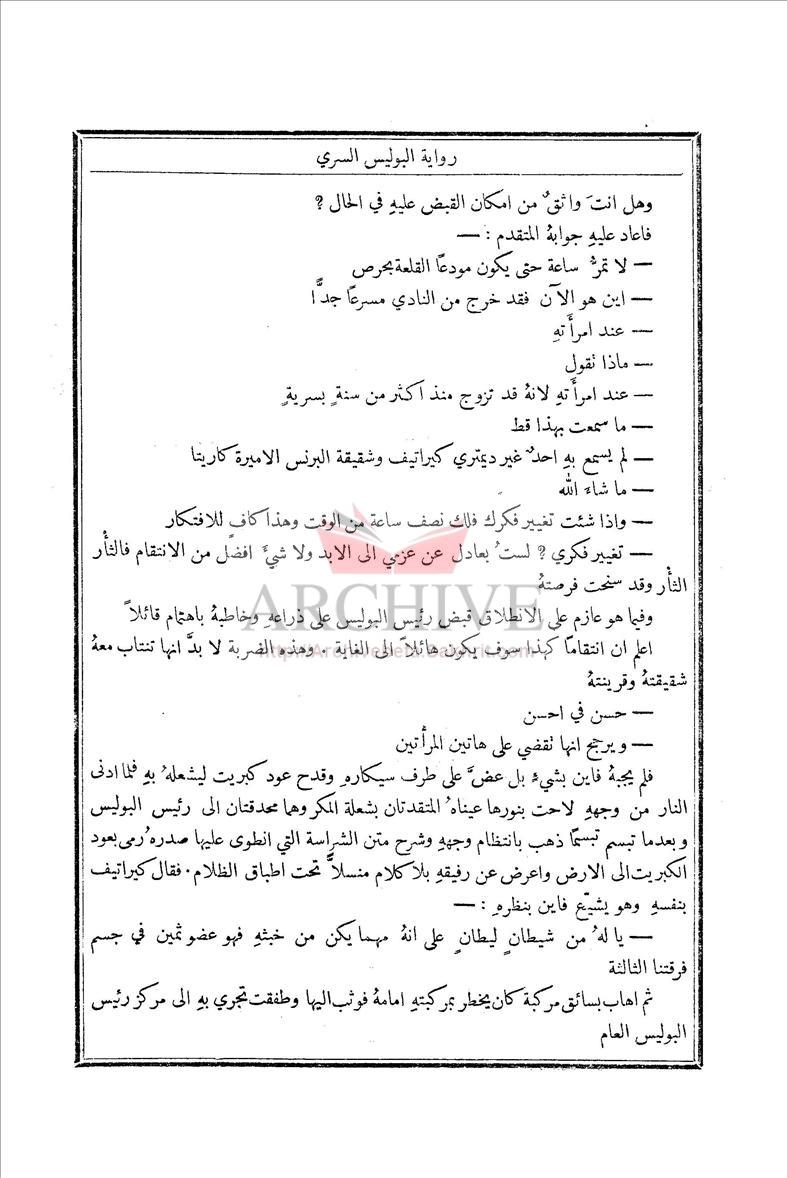 رواية البوليس السري
وهل انتَ واثقٌ من امكان القبض عليهِ في الحال ?
فاعاد عليهِ جوابهُ المتقدم : —
— لا تمرُّ ساعة حتى يكون مودعًا القلعة بحرص
— اين هو الآن فقد خرج من النادي مسرعًا جدًّا
— عند امرأَتهِ
— ماذا نقول
— عند امرأَتهِ لانهُ قد تزوج منذ اكثر من سنةٍ بسريةٍ
— ما سمعت بهذا قط
— لم يسمع بهِ احدٌ غير ديمتري كيراتيف وشقيقة البرنس الاميرة كاريتا
— ما شاءَ الله
— واذا شئت تغيير فكرك فلك نصف ساعة من الوقت وهذا كافٍ للافتكار
— تغيير فكري ? لستُ بعادل عن عزمي الى الابد ولا شيءَ افضل من الانتقام فالثأْر
الثأْر وقد سنحت فرصتهُ
وفيما هو عازم على الانطلاق قبض رئيس البوليس على ذراعهِ وخاطبهُ باهتمام قائلاً
اعلم ان انتقامًا كهذا سوف يكون هائلاً الى الغاية . وهذه الضربة لا بدَّ انها تنتاب معهُ
شقيقتهُ وقرينتهُ
— حسن في احسن
— ويرجح انها نقضي على هاتين المرأتين
فلم يجبهُ فاين بشيءٍ بل عضَّ على طرف سيكارهِ وقدح عود كبريت ليشعلهُ بهِ فلما ادنى
النار من وجههِ لاحت بنورها عيناهُ المتقدتان بشعلة المكر وهما محدقتان الى رئيس البوليس
وبعدما تبسم تبسمًا ذهب بانتظام وجههِ وشرح متن الشراسة التي انطوى عليها صدرهُ رمى بعود
الكبريت الى الارض واعرض عن رفيقهِ بلا كلام منسلاًّ تحت اطباق الظلام . فقال كيراتيف
بنفسهِ وهو يشيّع فاين بنظرهِ : —
— يا لهُ من شيطانٍ ليطانٍ على انهُ مهما يكن من خبثهِ فهو عضو ثمين في جسم
فرقتنا الثالثة
ثم اهاب بسائق مركبة كان يخطر بمركبتهِ امامهُ فوثب اليها وطفقت تجري بهِ الى مركز رئيس
البوليس العام
ARCHIVE